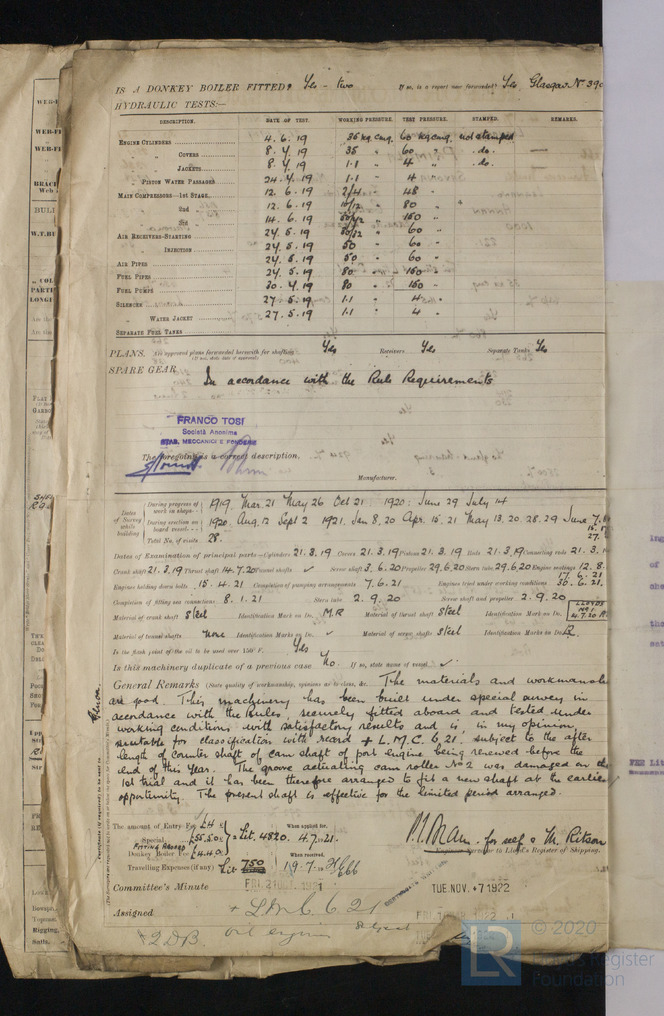 IS A DONKEY BOILER FITTED? Yes - two If so, is a report now forwarded? Yes Glasgow No 390
HYDRAULIC TESTS:—
DESCRIPTION. DATE OF TEST. WORKING PRESSURE. TEST PRESSURE. STAMPED. REMARKS.
ENGINE CYLINDERS 4.6.19 35 kg cmq. 60 kg cmq. not stamped
" COVERS 8.4.19 35 " 60 " .do.
" JACKETS 8.4.19 1.1 " 4 " .do.
" PISTON WATER PASSAGES 24.4.19 1.1 - 4
MAIN COMPRESSORS—1ST STAGE 12.6.19 2/4 " 48 "
" 2nd " 12.6.19 80 "
" 3rd " 14.6.19 150 "
AIR RECEIVERS—STARTING 24.5.19 60 "
" INJECTION 24.5.19 50 60 "
AIR PIPES 24.5.19 50 " 60 "
FUEL PIPES 24.5.19 80 " 150 "
FUEL PUMPS 30.4.19 80 150 "
SILENCER 27.5.19 1.1 " 4 "
" WATER JACKET 27.5.19 1.1 " 4 "
SEPARATE FUEL TANKS
PLANS. Are approved plans forwarded herewith for shafting Yes Receivers Yes Separate Tanks Yes
SPARE GEAR
In accordance with the Rule Requirements
FRANCO TOSI
Società Anonima
STAB. MECCANICI E FONDERIE
The foregoing is a correct description,
Manufacturer.
Dates of Survey while building
During progress of work in shops 1919. Mar. 21 May 26 Oct 21 1920: June 29 July 14
During erection on board vessel 1920. Aug. 12 Sept 2 1921. Jan 8. 20 Apr. 15. 21 May 13. 20. 28. 29 June 7.
Total No. of visits 28.
Dates of Examination of principal parts—Cylinders 21.3.19 Covers 21.3.19 Pistons 21.3.19 Rods 21.3.19 Connecting rods 21.3.
Crank shaft 21.3.19 Thrust shaft 14.7.20 Tunnel shafts ✓ Screw shaft 3.6.20 Propeller 29.6.20 Stern tube 29.6.20 Engine seatings 12.8.
Engines holding down bolts 15.4.21 Completion of pumping arrangements 7.6.21 Engines tried under working conditions 17.6.21 30.6.21.
Completion of fitting sea connections 8.1.21 Stern tube 2.9.20 Screw shaft and propeller 2.9.20
Material of crank shaft Steel Identification Mark on Do. M.R Material of thrust shaft Steel Identification Mark on Do. LLOYDS No 1 4.7.20
Material of tunnel shafts none Identification Marks on Do. ✓ Material of screw shafts Steel Identification Marks on Do. R.
Is the flash point of the oil to be used over 150° F. Yes
Is this machinery duplicate of a previous case No. If so, state name of vessel ✓
General Remarks (State quality of workmanship, opinions as to class, &c. The materials and workmanship
are good. This machinery has been built under special survey in
accordance with the Rules, securely fitted aboard and tested under
working conditions with satisfactory results and is in my opinion
suitable for classification with record of L.M.C. 6.21, subject to the after
length of counter shaft of cam shaft of port engine being renewed before the
end of this year. The grove actuating cam roller No 2 was damaged on the
1st trial and it has been therefore arranged to fit a new shaft at the earliest
opportunity. The present shaft is effective for the limited period arranged.
The amount of Entry Fee £4 When applied for,
Special £55.5.0 = Lit. 4820. 4.7.21.
FITTING ABOARD
Donkey Boiler Fee £4.4.0 When received,
Travelling Expenses (if any) Lit. 750 19.7.21
for self & M. Ritson
Engineer Surveyor to Lloyd's Register of Shipping.
Committee's Minute TUE. NOV. -7 1922
Assigned + L.M.C. 6 21
2DB oil engine
© 2020
Lloyd's Register
Foundation
LR